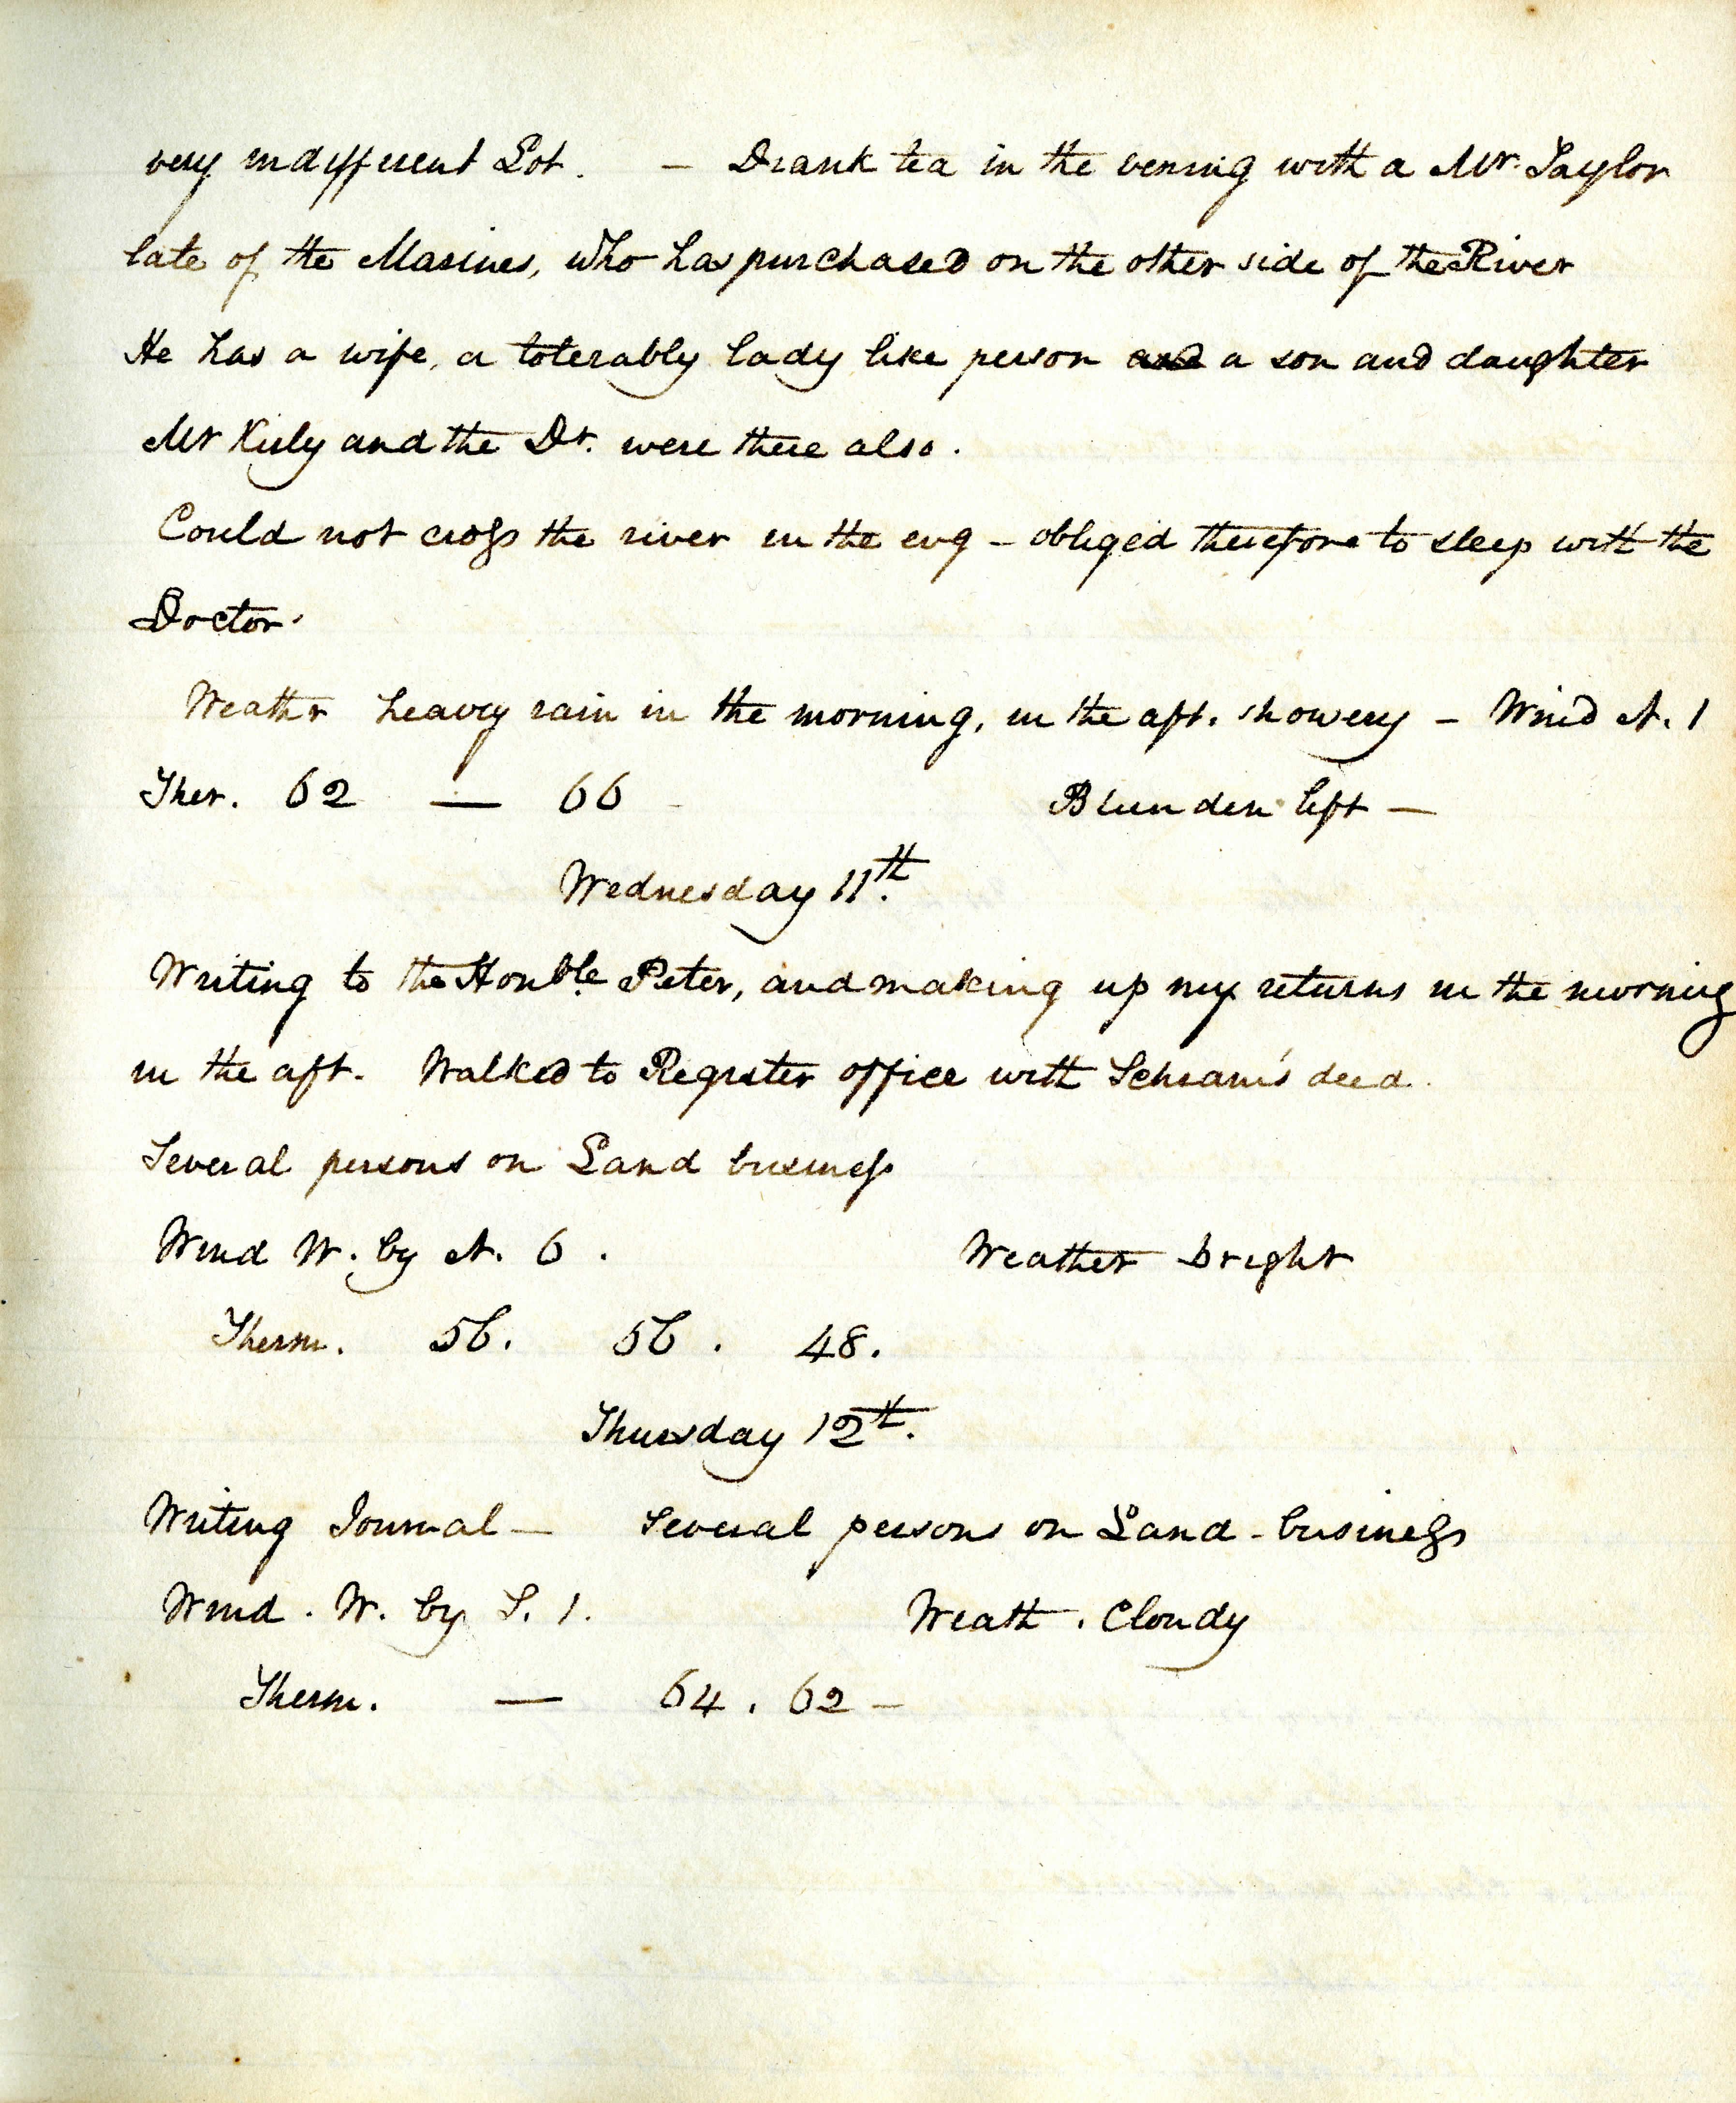 very indifferent Lot. – Drank tea in the vening with a Mr. Taylor
late of the Marines, who has purchased on the other side of the River
He has a wife, a tolerably lady like person and a son and daughter
Mr Kiely and the Dr. were there also.
Could not cross the river in the evg – obliged therefore to sleep with the
Doctor.
Weather heavy rain in the morning, in the aft. showery – Wind N. 1
Ther. 62 — 66 Blunden left —
Wednesday 11th.
Writing to the Honble Peter, and making up my returns in the morning
in the aft. Walked to Register office with Schram's deed.
Several persons on Land business
Wind W. by N. 6. Weather bright
Therm. 56. 56. 48.
Thursday 12th.
Writing Journal — Several persons on Land-business
Wind. W. by S. 1. Weath. Cloudy
Therm. — 64. 62 –